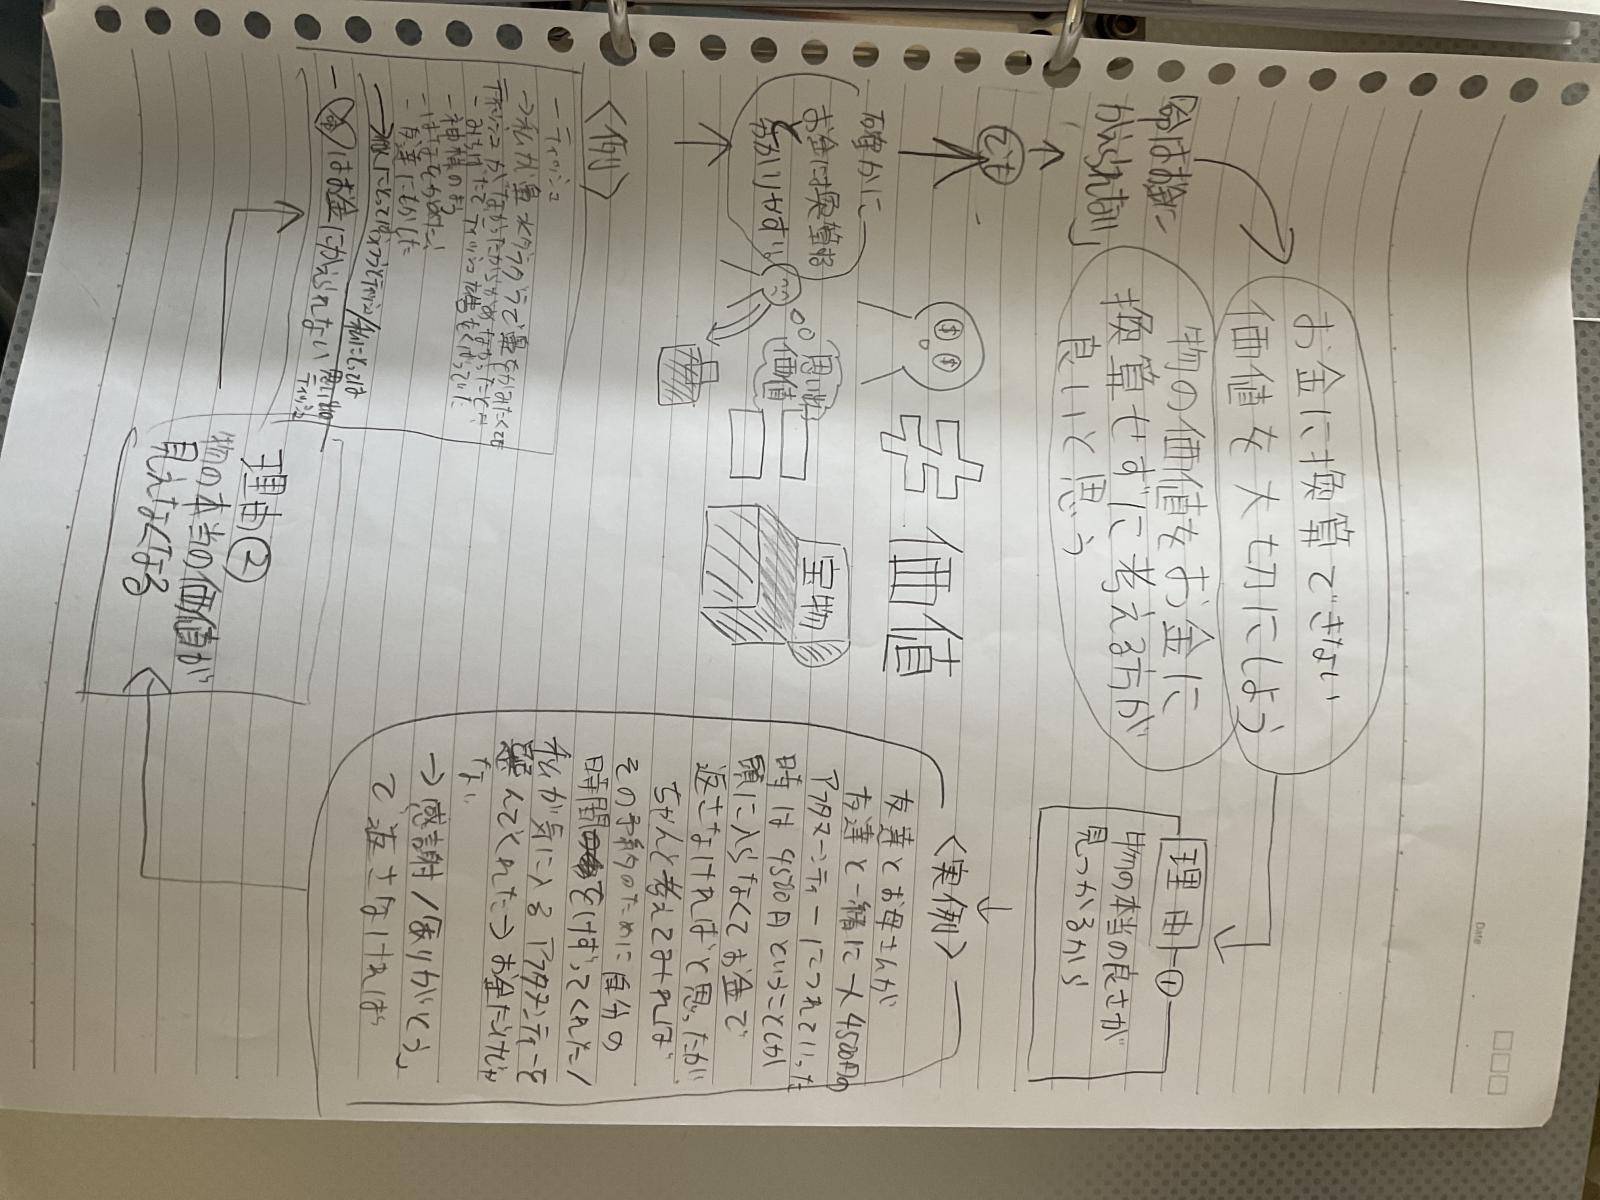 お金に換算できない
価値を大切にしよう
「命はお金に
かえられない」
物の価値をお金に
換算せずに考える方が
良いと思う
理由①
物の本当の良さが
見つかるから
でも
確かに
お金に換算は
分かりやすい
$ $
≠ 価値
思い出
価値
宝物
〈実例〉
友達とお母さんが
友達と一緒に一人4500円の
アフタヌーンティーにつれていった
時は4500円ということが
頭に入らなくてお金で
返さなければと思ったが
ちゃんと考えてみれば
その予約のために自分の
時間をけずってくれた/
私が気に入るアフタヌーンティーを
選んでくれた→お金だけじゃ
ない
→感謝/ありがとう
で返さなければ
〈例〉
- ティッシュ
- 神様の
友達にもらった
はお金にかえられない
ティッシュ
理由②
物の本当の価値が
見えなくなる
Date